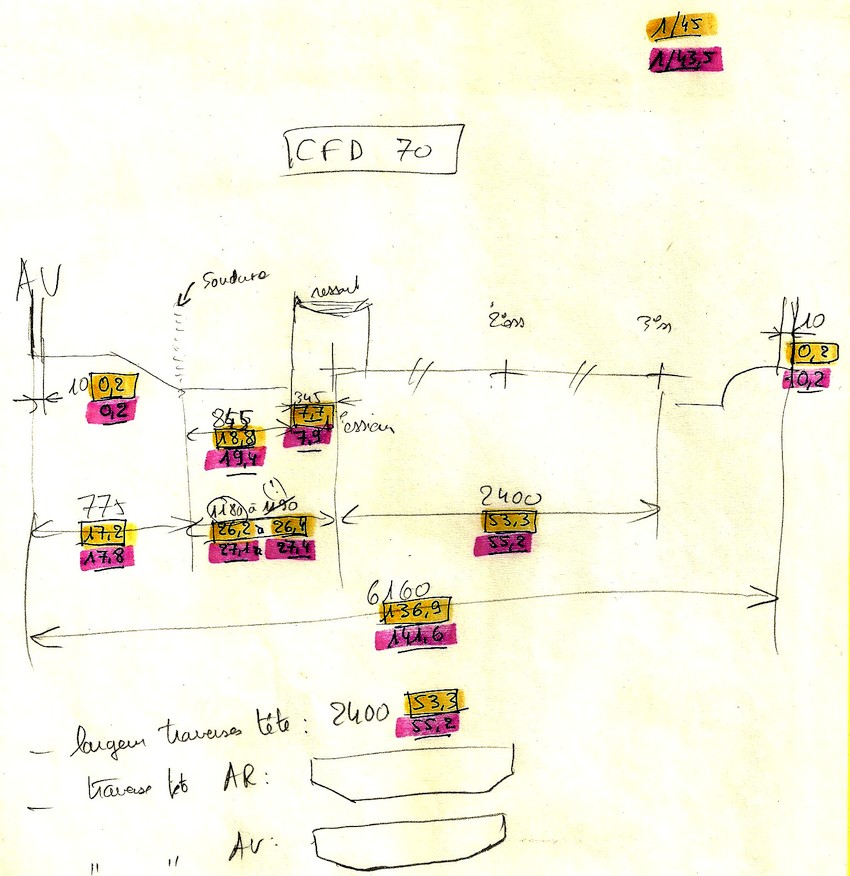 1/45
1/43,5
CFD 70
AV
Soudure
ressort
2°ess
3°ss
10
0,2
0,2
10 0,2
0,2
345
7,7
7,9
1°essieu
845
18,8
19,4
775
17,2
17,8
1180 à 1190
(!)
26,2 à 26,4
27,1 à 27,4
2400
53,3
55,2
6160
136,9
141,6
— largeur traverses tête : 2400 53,3
55,2
— traverse tête AR :
" " AV :